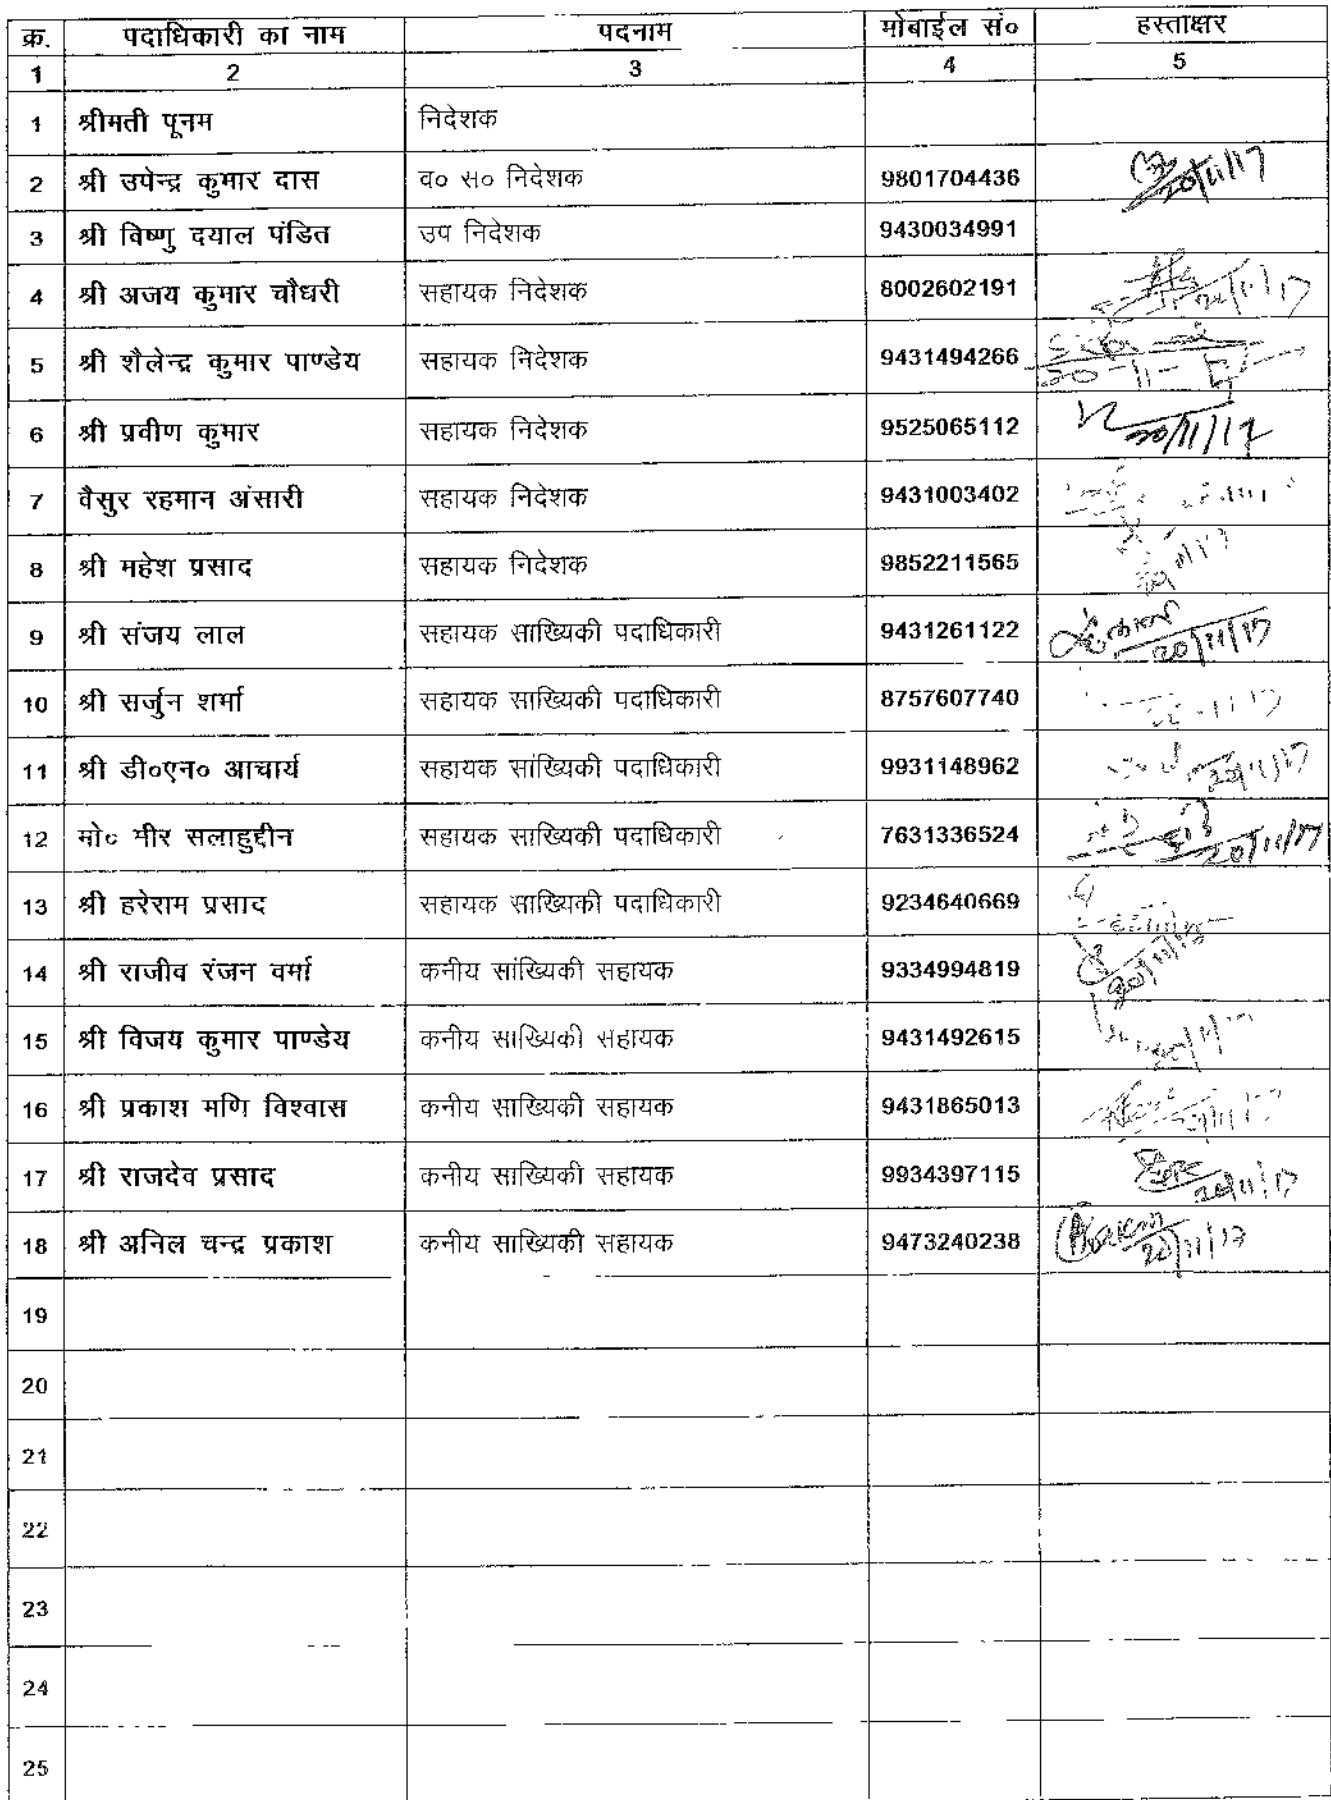 क्र. पदाधिकारी का नाम पदनाम मोबाईल सं० हस्ताक्षर
1 2 3 4 5
1 श्रीमती पूनम निदेशक
2 श्री उपेन्द्र कुमार दास व० स० निदेशक 9801704436 20/11/17
3 श्री विष्णु दयाल पंडित उप निदेशक 9430034991
4 श्री अजय कुमार चौधरी सहायक निदेशक 8002602191 20/11/17
5 श्री शैलेन्द्र कुमार पाण्डेय सहायक निदेशक 9431494266
6 श्री प्रवीण कुमार सहायक निदेशक 9525065112 20/11/17
7 वैसुर रहमान अंसारी सहायक निदेशक 9431003402
8 श्री महेश प्रसाद सहायक निदेशक 9852211565
9 श्री संजय लाल सहायक साख्यिकी पदाधिकारी 9431261122 20/11/17
10 श्री सर्जुन शर्मा सहायक साख्यिकी पदाधिकारी 8757607740
11 श्री डी०एन० आचार्य सहायक सांख्यिकी पदाधिकारी 9931148962 20/11/17
12 मो० मीर सलाहुद्दीन सहायक साख्यिकी पदाधिकारी 7631336524 20/11/17
13 श्री हरेराम प्रसाद सहायक साख्यिकी पदाधिकारी 9234640669
14 श्री राजीव रंजन वर्मा कनीय सांख्यिकी सहायक 9334994819 20/11/17
15 श्री विजय कुमार पाण्डेय कनीय साख्यिकी सहायक 9431492615
16 श्री प्रकाश मणि विश्वास कनीय साख्यिकी सहायक 9431865013
17 श्री राजदेव प्रसाद कनीय साख्यिकी सहायक 9934397115 20/11/17
18 श्री अनिल चन्द्र प्रकाश कनीय साख्यिकी सहायक 9473240238 20/11/17
19
20
21
22
23
24
25